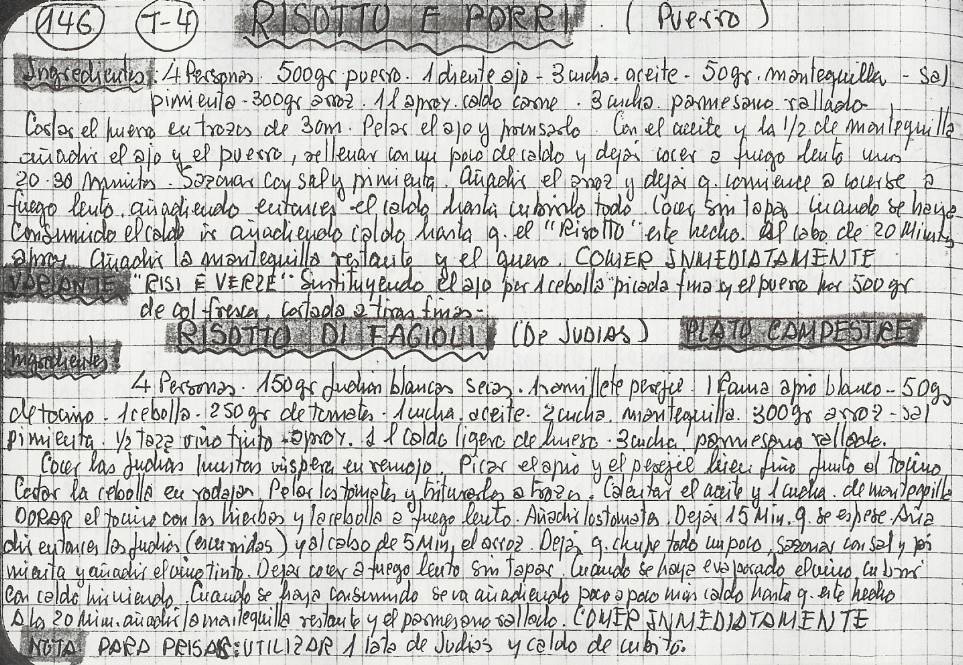 146 T-4 RISOTTO E PORRI. (Puerro)
Ingredientes: 4 Personas. 500gr puerro. 1 diente ajo - 3 cucha. aceite - 50gr. mantequilla - sal
pimienta - 300gr arroz. 1 l aprox. caldo carne. 3 cucha. parmesano rallado
Cortar el puerro en trozos de 3cm. Pelar el ajo y prensarlo. Con el aceite y la 1/2 de mantequilla
añadir el ajo y el puerro, rellenar con un poco de caldo y dejar cocer a fuego lento unos
20-30 minutos. Sazonar con sal y pimienta. Añadir el arroz y dejar q. comience a cocerse a
fuego lento, añadiendo entonces el caldo hasta cubrirlo todo. Cocer sin tapar. Cuando se haya
consumido el caldo ir añadiendo caldo hasta q. el "Risotto" este hecho. Al cabo de 20 Minutos
aprox. añadir la mantequilla restante y el queso. COMER INMEDIATAMENTE
VARIANTE "RISI E VERZE" Sustituyendo el ajo por 1 cebolla picada fina y el puerro por 500gr
de col fresca, cortada a tiras finas-
RISOTTO DI FAGIOLI (De JUDIAS) PLATO CAMPESTRE
Ingredientes:
4 Personas. 150gr judias blancas secas. 1 ramillete perejil. 1 Rama apio blanco - 50g
de tocino. 1 cebolla. 250gr de tomates. 1 cucha. aceite. 2 cucha. mantequilla. 300gr arroz - sal
pimienta. 1/2 taza vino tinto aprox. 1 l Caldo ligero de hueso. 3 cucha. parmesano rallado.
Cocer las judias puestas vispera en remojo. Picar el apio y el perejil bien fino junto al tocino
Cortar la cebolla en rodajas. Pelar los tomates y triturarlos a trozos. Calentar el aceite y 1 cucha. de mantequilla
DORAR el tocino con las hierbas y la cebolla a fuego lento. Añadir los tomates. Dejar 15 Min. q. se espese. Aña
dir entonces las judias (escurridas) y al cabo de 5 Min, el arroz. Dejar q. chupe todo un poco, sazonar con sal y pi
mienta y añadir el vino tinto. Dejar cocer a fuego lento sin tapar. Cuando se haya evaporado el vino cubrir
con caldo hirviendo. Cuando se haya consumido se va añadiendo poco a poco mas caldo hasta q. este hecho
A los 20 Min. añadir la mantequilla restante y el parmesano rallado. COMER INMEDIATAMENTE
NOTA PARA PRISAS: UTILIZAR 1 lata de Judias y caldo de cubito.